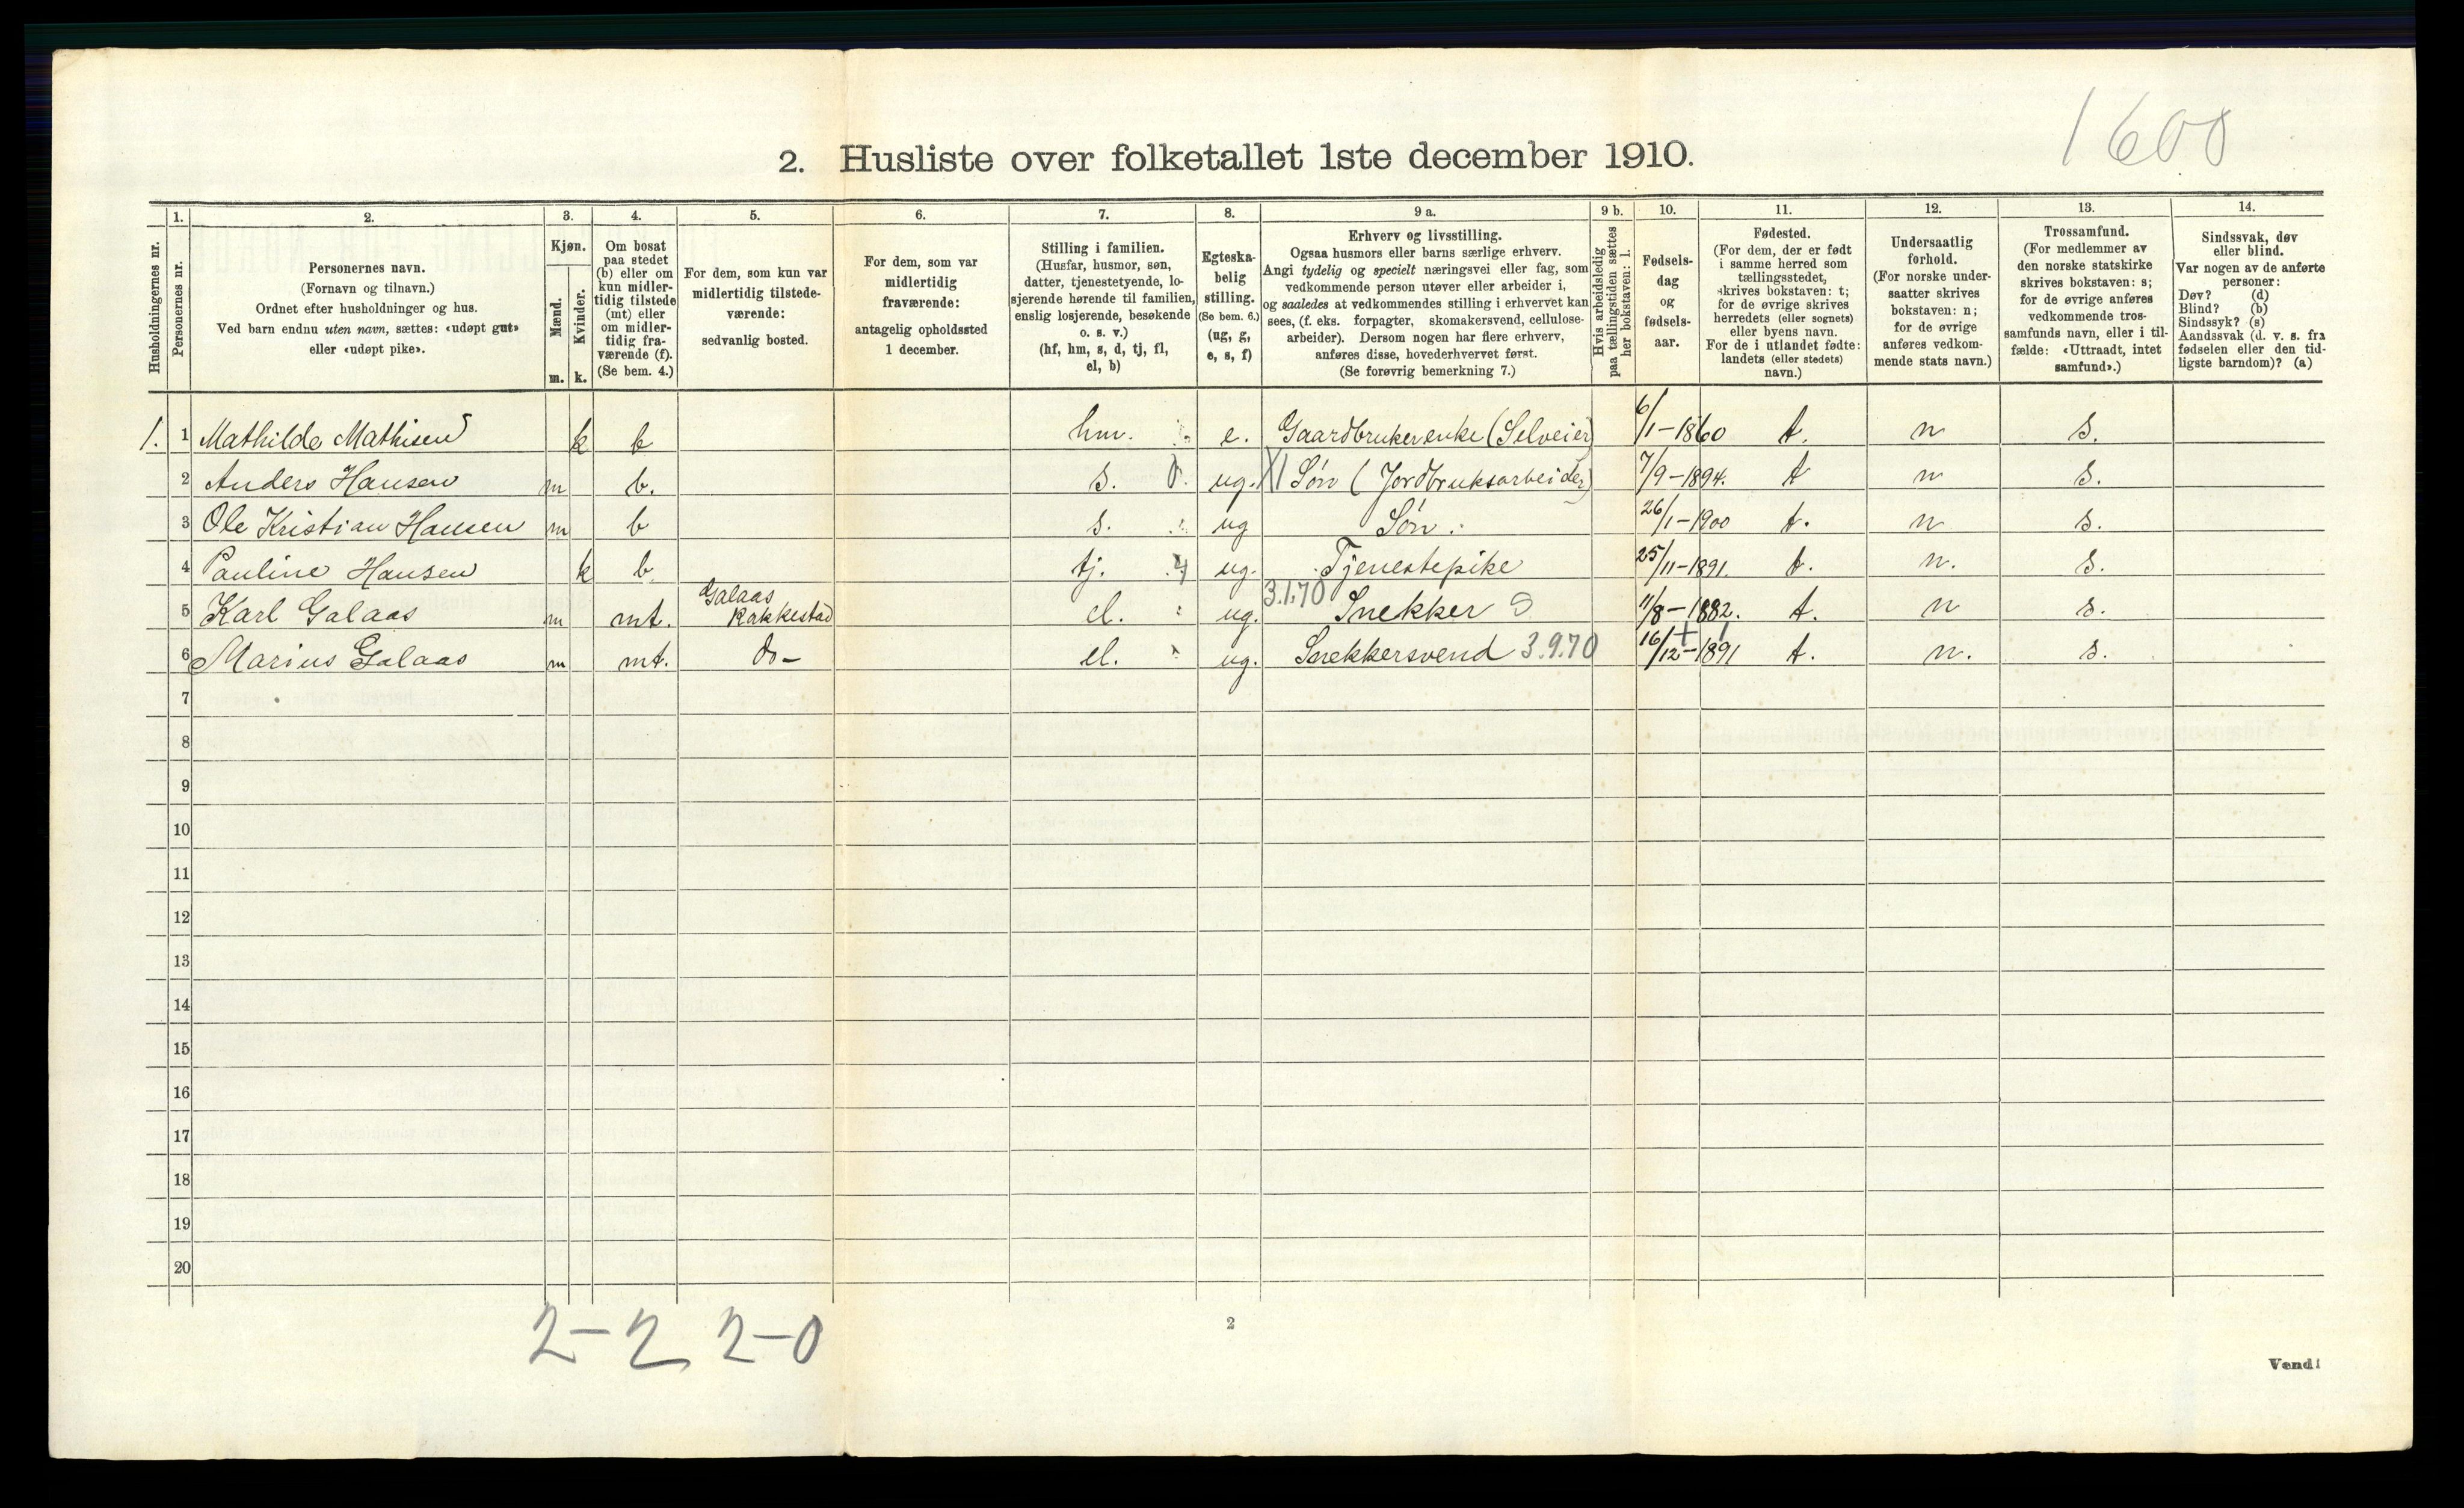 1600
2. Husliste over folketallet 1ste december 1910.
Husholdningernes nr.
1.
Personernes nr.
2.
Personernes navn.
(Fornavn og tilnavn.)
Ordnet efter husholdninger og hus.
Ved barn endnu uten navn, sættes: «udøpt gut»
eller «udøpt pike».
3.
Kjøn.
Mænd.
m.
Kvinder.
k.
4.
Om bosat
paa stedet
(b) eller om
kun midler-
tidig tilstede
(mt) eller
om midler-
tidig fra-
værende (f).
(Se bem. 4.)
5.
For dem, som kun var
midlertidig tilstede-
værende:
sedvanlig bosted.
6.
For dem, som var
midlertidig
fraværende:
antagelig opholdssted
1 december.
7.
Stilling i familien.
(Husfar, husmor, søn,
datter, tjenestetyende, lo-
sjerende hørende til familien,
enslig losjerende, besøkende
o. s. v.)
(hf, hm, s, d, tj, fl,
el, b)
8.
Egteska-
belig
stilling.
(Se bem. 6.)
(ug, g,
e, s, f)
9 a.
Erhverv og livsstilling.
Ogsaa husmors eller barns særlige erhverv.
Angi tydelig og specielt næringsvei eller fag, som
vedkommende person utøver eller arbeider i,
og saaledes at vedkommendes stilling i erhvervet kan
sees, (f. eks. forpagter, skomakersvend, cellulose-
arbeider). Dersom nogen har flere erhverv,
anføres disse, hovederhvervet først.
(Se forøvrig bemerkning 7.)
9 b.
Hvis arbeidsledig
paa tællingstiden sættes
her bokstaven: l.
10.
Fødsels-
dag
og
fødsels-
aar.
11.
Fødested.
(For dem, der er født
i samme herred som
tællingsstedet,
skrives bokstaven: t;
for de øvrige skrives
herredets (eller sognets)
eller byens navn.
For de i utlandet fødte:
landets (eller stedets)
navn.)
12.
Undersaatlig
forhold.
(For norske under-
saatter skrives
bokstaven: n;
for de øvrige
anføres vedkom-
mende stats navn.)
13.
Trossamfund.
(For medlemmer av
den norske statskirke
skrives bokstaven: s;
for de øvrige anføres
vedkommende tros-
samfunds navn, eller i til-
fælde: «Uttraadt, intet
samfund».)
14.
Sindssvak, døv
eller blind.
Var nogen av de anførte
personer:
Døv? (d)
Blind? (b)
Sindssyk? (s)
Aandssvak (d. v. s. fra
fødselen eller den tid-
ligste barndom)? (a)
1. 1 Mathilde Mathisen k b hm. e. Gaardbrukerenke (Selveier) 6/1-1860 t. n s.
2 Anders Hansen m b. s. ug. Søn (Jordbruksarbeider) 7/9-1894. t n s.
3 Ole Kristian Hansen m b s. ug Søn. 26/1-1900 t. n s.
4 Pauline Hansen k b tj. ug. Tjenestepike 25/11-1891. t. n. s.
5 Karl Galaas m mt. Galaas Rakkestad el. ug. 3.1.70 Snekker 11/8-1882. t. n s.
6 Marius Galaas m mt. do- el. ug. Snekkersvend 3.9.70 16/12-1891 t. n. s.
7
8
9
10
11
12
13
14
15
16
17
18
19
20
2-2 2-0
2
Vend!